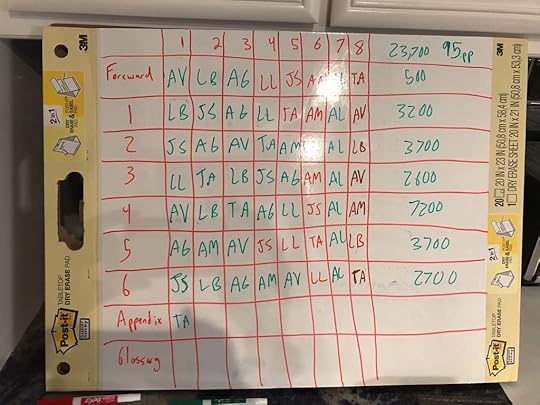 1 2 3 4 5 6 7 8 23,700 95pp
Foreword AV LB AG LL JS AM AL TA 500
1 LB JS AG LL TA AM AL AV 3200
2 JS AG AV TA AM LL AL LB 3700
3 LL TA LB JS AG AM AL AV 2600
4 AV LB TA AG LL JS AL AM 7200
5 AG AM AV JS LL TA AL LB 3700
6 JS LB AG AM AV LL AL TA 2700
Appendix TA
Glossary
Post-it
TABLETOP
DRY ERASE PAD
2 in 1
DRY
ERASE & EASEL
PAD
3M
3M
20 20 IN x 23 IN (50,8 cm x 58,4 cm)
1 DRY ERASE SHEET 20 IN x 21 IN (50,8 cm x 53,3 cm)
2 in 1
TABLETOP
DRY ERASE PAD
Post-it
EXPO